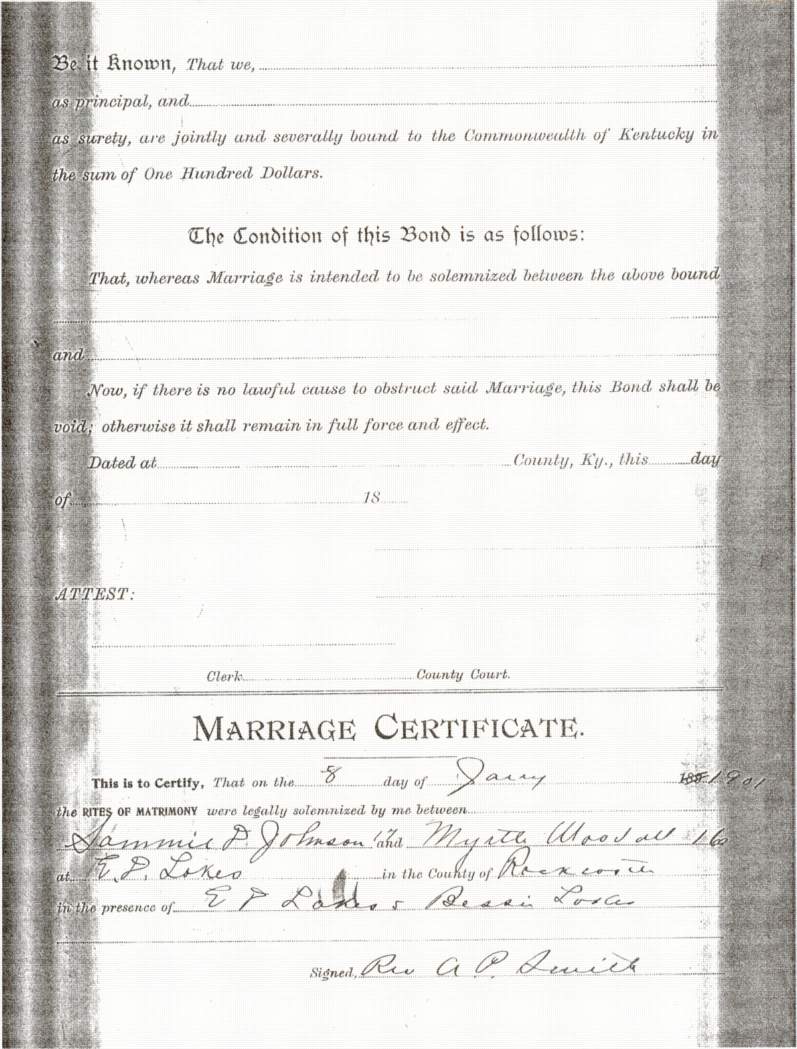 Be it Known, That we,
as principal, and
as surety, are jointly and severally bound to the Commonwealth of Kentucky in
the sum of One Hundred Dollars.
The Condition of this Bond is as follows:
That, whereas Marriage is intended to be solemnized between the above bound
and
Now, if there is no lawful cause to obstruct said Marriage, this Bond shall be
void; otherwise it shall remain in full force and effect.
Dated at County, Ky., this day
of 18
ATTEST:
Clerk County Court.
MARRIAGE CERTIFICATE.
This is to Certify, That on the 8 day of Jany 1901
the RITES OF MATRIMONY were legally solemnized by me between
Sammie D. Johnson 17 and Myrtle Woodall 16
at E. P. Lokes in the County of Rockcastle
in the presence of E P Lokes & Bessie
Signed, Rev A. P. Smith